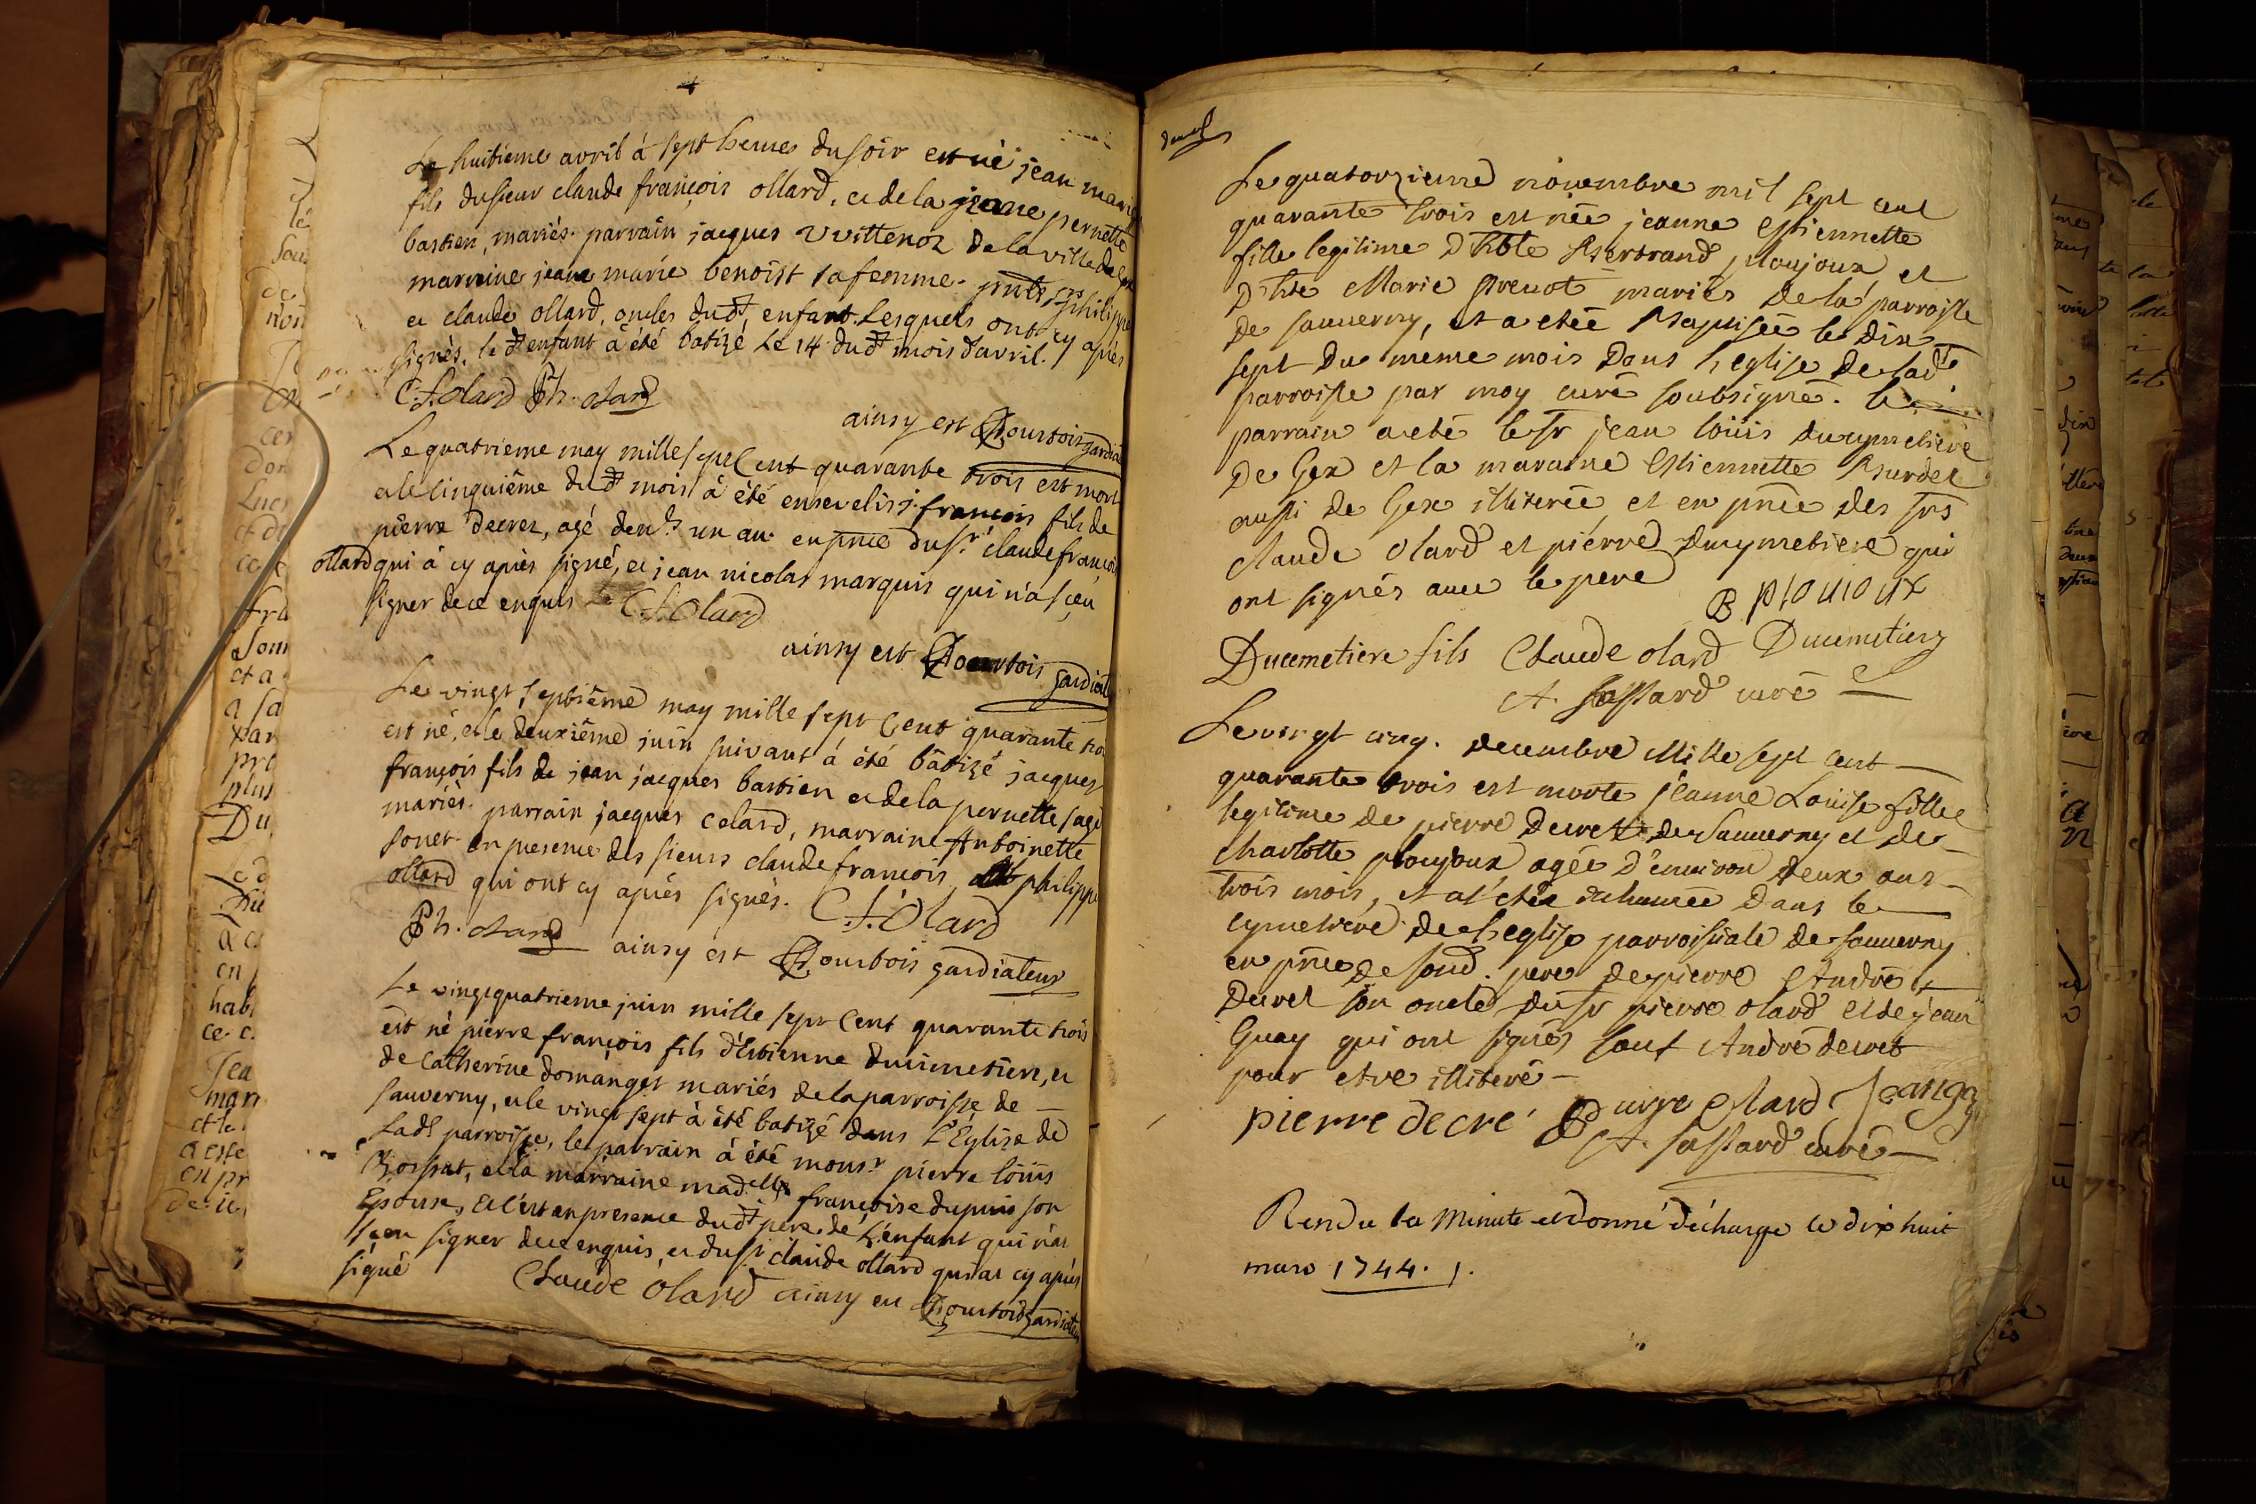 Le huitieme avril à sept heures du soir est né jean marie
fils du sieur claude françois ollard, et de la jeane pernette
bastien, mariés. parrain jacques vvittenoz de la ville de
marraine jeane marie benoist sa femme. pnts srs philippe
et claude ollard, oncles dudt enfant. Lesquels ont cy après
signés. le dt enfant à été batizé Le 14 dudt mois d'avril.
C. f. Olard Ph. olard
ainsy est Courtois gardiat
Le quatrieme may mille sept Cent quarante trois est mort
et le cinquiême dudt mois à été enseveli j. françois fils de
pierre decrez, agé den. un an. en pnce du sr claude françois
ollard qui à cy après signé, et jean nicolas marquis qui n'a sçeu
signer de ce enquis C. f. Olard
ainsy est Courtois gardiat
Le vingt septiême may mille sept Cent quarante troi
est né, et le deuxiême juin suivant à été bâtizé jacques
françois fils de jean jacques bastien et de la pernette sage
mariés. parrain jacques colard, marraine Antoinette
sonet en presence des sieurs claude françois, philippe
ollard qui ont cy après signés. C. f. Olard
Ph. olard ainsy est Courtois gardiateur
Le vingt quatrieme juin mille sept Cent quarante trois
est né pierre françois fils d'Estienne ducimetiere, et
de Catherine domanget mariés de la parroisse de
sauverny, et le vingt sept à été batizé dans L'Eglise de
Ladt parroisse, le parrain à été monsr pierre loüis
et la marraine madelle françoise dupuis son
Epouse, et c'est en presence dudt pere de L'enfant qui n'as
sçeu signer de ce enquis, et du sr claude ollard qui as cy après
signé
Claude Olard ainsy est Courtois gardiateu
Le quatorzieme novembre mil sept cent
quarante trois est née jeanne Estiennette
fille legitime d'hble Bertrand ploujoux et
d'hble Marie prevot mariés de la parroisse
de sauverny, et a etée Baptisée le dix
sept du même mois dans l'eglise de ladte
parroisse par moy curé soubsigné. le
parrain a eté le sr jean loüis ducymetiere
de Gex et la maraine Estiennette Burdet
aussi de Gex illiterée, et en pnce des srs
Claude Olard et pierre ducymetiere qui
ont signés avec le pere
B plouioux
Ducemetiere fils Claude olard Ducemetiere
A. sassard curé
Le vingt cinq. decembre Mille sept cent
quarante trois est morte jeanne Louise fille
legitime de pierre decret de Sauverny et de
Charlotte ploujoux agée d'environ deux ans
trois mois, et a etée inhumée dans le
cymetiere de l'eglise parroissiale de sauverny
en pnce de sond. pere de pierre André
decret son oncle du sr pierre olard et de jean
Guay qui ont signés sauf André decret
pour etre illiteré
pierre decré pierre olard Jean
A. sassard curé
Rendu la Minute et donné décharge le dix huit
mars 1744.